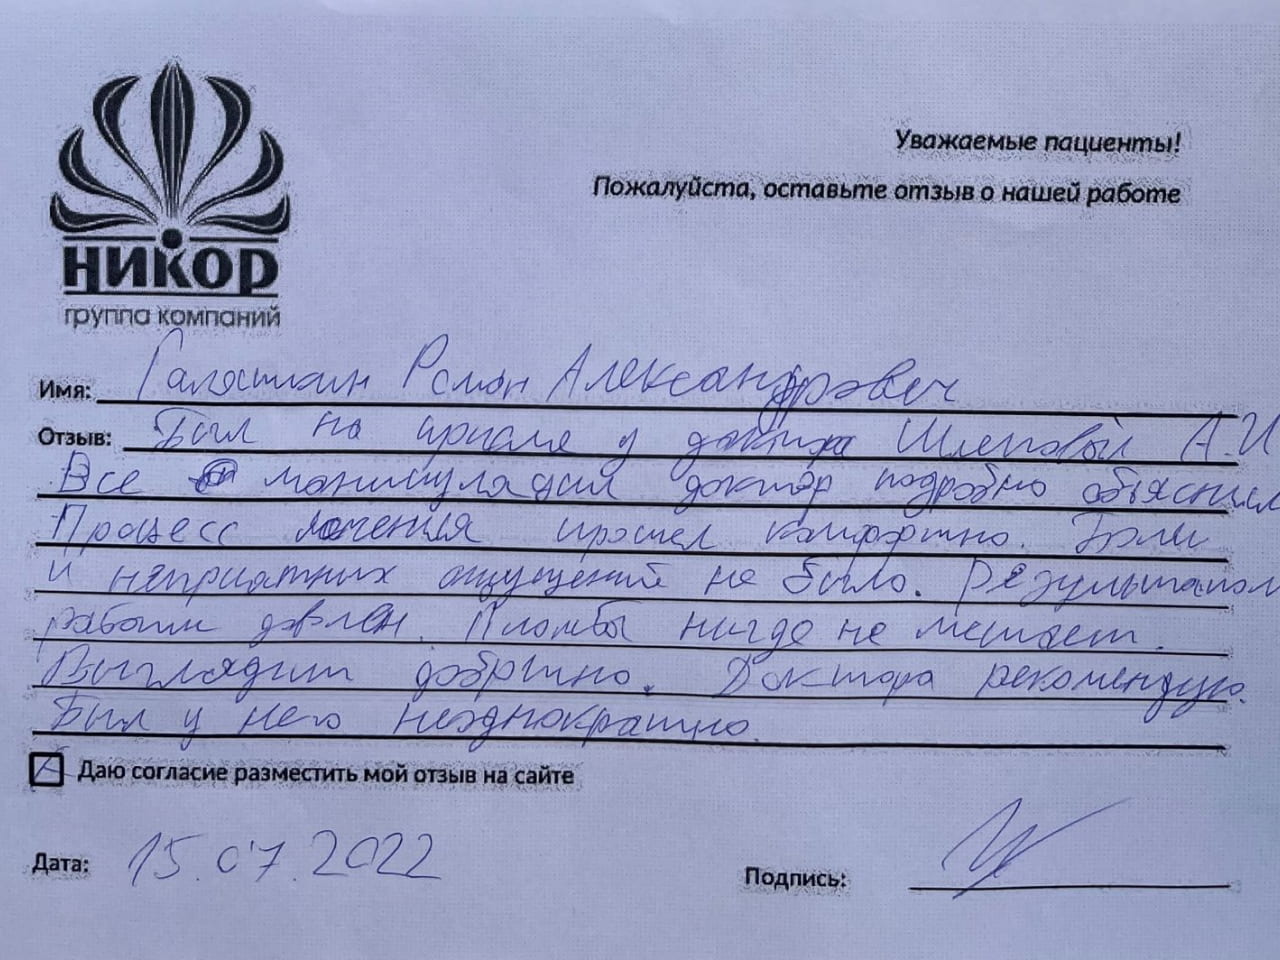 никор
группа компаний
Уважаемые пациенты!
Пожалуйста, оставьте отзыв о нашей работе
Имя: Роман Александрович
Отзыв: Был на приеме у доктора Шлеповой А.И
Все манипуляции доктор подробно объяснил
Процесс лечения прошел комфортно. Боли
и неприятных ощущений не было. Результатом
работы доволен. Пломбы нигде не мешает.
Выглядит добртно. Доктора рекомендую.
Был у него неоднократно.
Даю согласие разместить мой отзыв на сайте
Дата: 15.07.2022
Подпись: